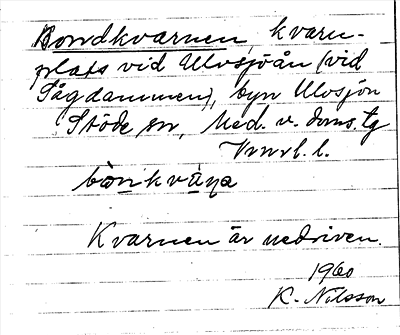 Bondkvarnen, kvarn-
plats vid Ulvsjöån (vid
Sågdammen), byn Ulvsjön
Stöde sn, Med. v. doms. tg
Vnrl. l.
Kvarnen är nedriven.
1960
K. Nilsson